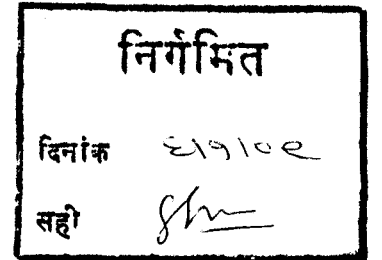 निर्गमित
दिनांक ६/१/०९
सही